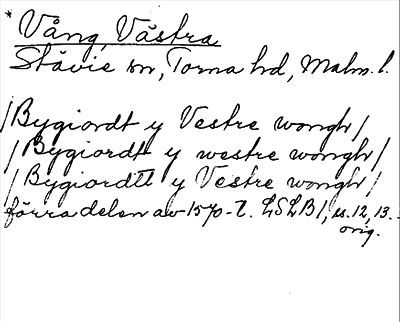 * Vång, Västra
Stävie sn, Torna hd, Malm. l.
/Bygiordt y Vestre wongh/
/Bygiordt y westre wongh/
/Bygiordtt y Vestre wongh/
förra delen av 1570-t. LSLB 1, s. 12, 13.
orig.